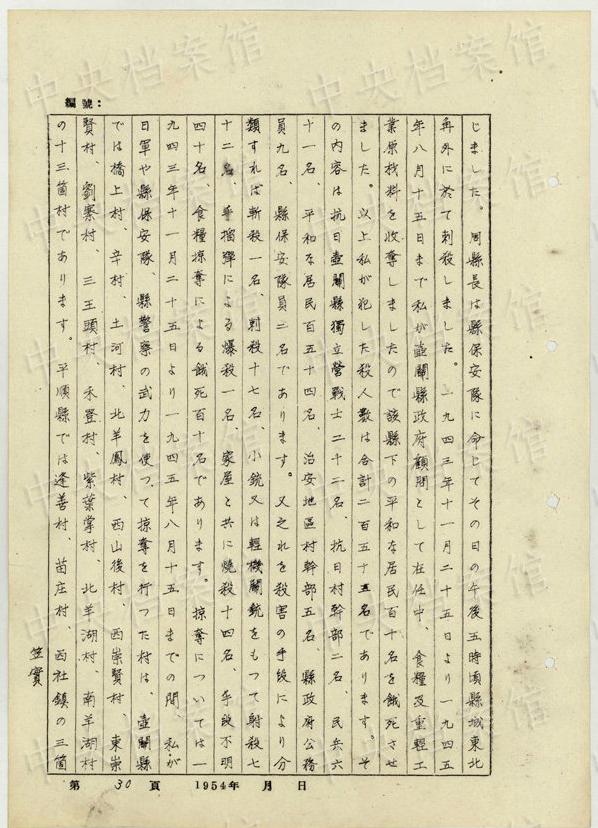 編號：
じました。周縣長は縣保安隊に命じてその日の午後五時頃縣城東北
再外に於て刺殺しました。一九四三年十一月二十五日より一九四五
年八月十五日まで私が壺關縣政府顧問として在任中、食糧及重輕工
業原材料を收奪しましたので該縣下の平和な居民百十名を餓死させ
ました。以上私が犯した殺人數は合計二百五十五名であります。そ
の内容は抗日壺關縣獨立營戰士二十二名、抗日村幹部二名、民兵六
十一名、平和な居民百五十四名、治安地區村幹部五名、縣政府公務
員九名、縣保安隊員二名であります。又之れを殺害の手段により分
類すれば斬殺一名、刺殺十七名、小銃又は輕機關銃をもつて射殺七
十二名、手榴彈による爆殺一名、家屋と共に燒殺十四名、手段不明
四十名、食糧掠奪による餓死百十名であります。掠奪については一
九四三年十一月二十五日より一九四五年八月十五日までの間、私が
日軍や縣保安隊、縣警察の武力を使つて掠奪を行つた村は、壺關縣
では橋上村、辛村、土河村、北羊鳳村、西山後村、西崇賢村、東崇
賢村、劉寨村、三王頭村、禾登村、紫葉掌村、北羊湖村、南羊湖村
の十三箇村であります。平順縣では逢善村、苗庄村、西社鎮の三箇
笠實
第 30 頁 1954年 月 日
中央档案馆